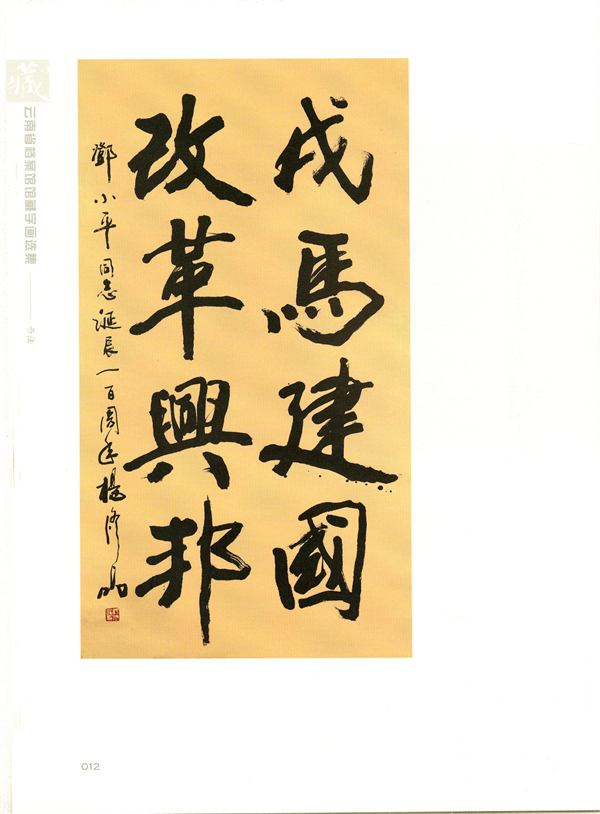 戎馬建國
改革興邦
鄧小平同志誕辰一百周年楊修
藏
云南省档案馆馆藏字画选集
书法
012